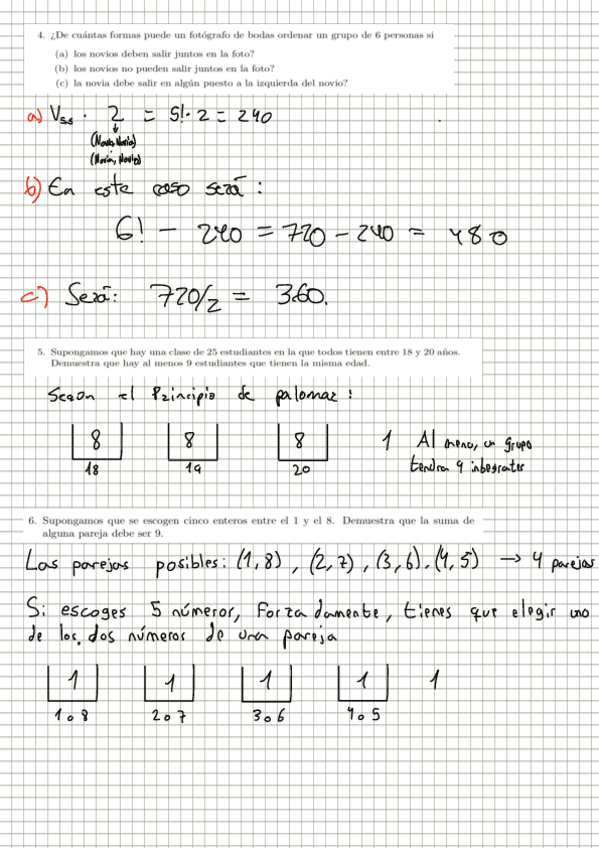 4. ¿De cuántas formas puede un fotógrafo de bodas ordenar un grupo de 6 personas si
(a) los novios deben salir juntos en la foto?
(b) los novios no pueden salir juntos en la foto?
(c) la novia debe salir en algún puesto a la izquierda del novio?
a) V5,5 · 2 = 5!·2 = 240
(Novio, Novia)
(Novia, Novio)
b) En este caso será :
6! - 240 = 720 - 240 = 480
c) Será: 720/2 = 360.
5. Supongamos que hay una clase de 25 estudiantes en la que todos tienen entre 18 y 20 años.
Demuestra que hay al menos 9 estudiantes que tienen la misma edad.
Según el Principio de palomar :
8 8 8 1 Al meno, un grupo
18 19 20 tendra 9 integrates
6. Supongamos que se escogen cinco enteros entre el 1 y el 8. Demuestra que la suma de
alguna pareja debe ser 9.
Las parejas posibles: (1,8), (2,7), (3,6), (4,5) → 4 parejas
Si escoges 5 números, Forzadamente, tienes que elegir uno
de los dos números de una pareja
1 1 1 1 1
1 o 8 2 o 7 3 o 6 4 o 5